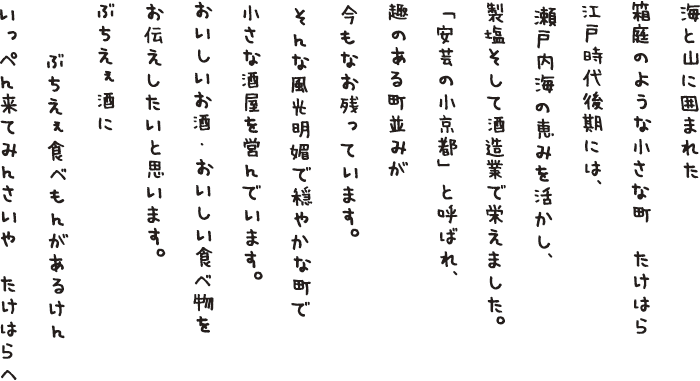 海と山に囲まれた
箱庭のような小さな町　たけはら
江戸時代後期には、
瀬戸内海の恵みを活かし、
製塩そして酒造業で栄えました。
「安芸の小京都」と呼ばれ、
趣のある町並みが
今もなお残っています。
そんな風光明媚で穏やかな町で
小さな酒屋を営んでいます。
おいしいお酒・おいしい食べ物を
お伝えしたいと思います。
ぶちえぇ酒に
ぶちえぇ食べもんがあるけん
いっぺん来てみんさいや　たけはらへ